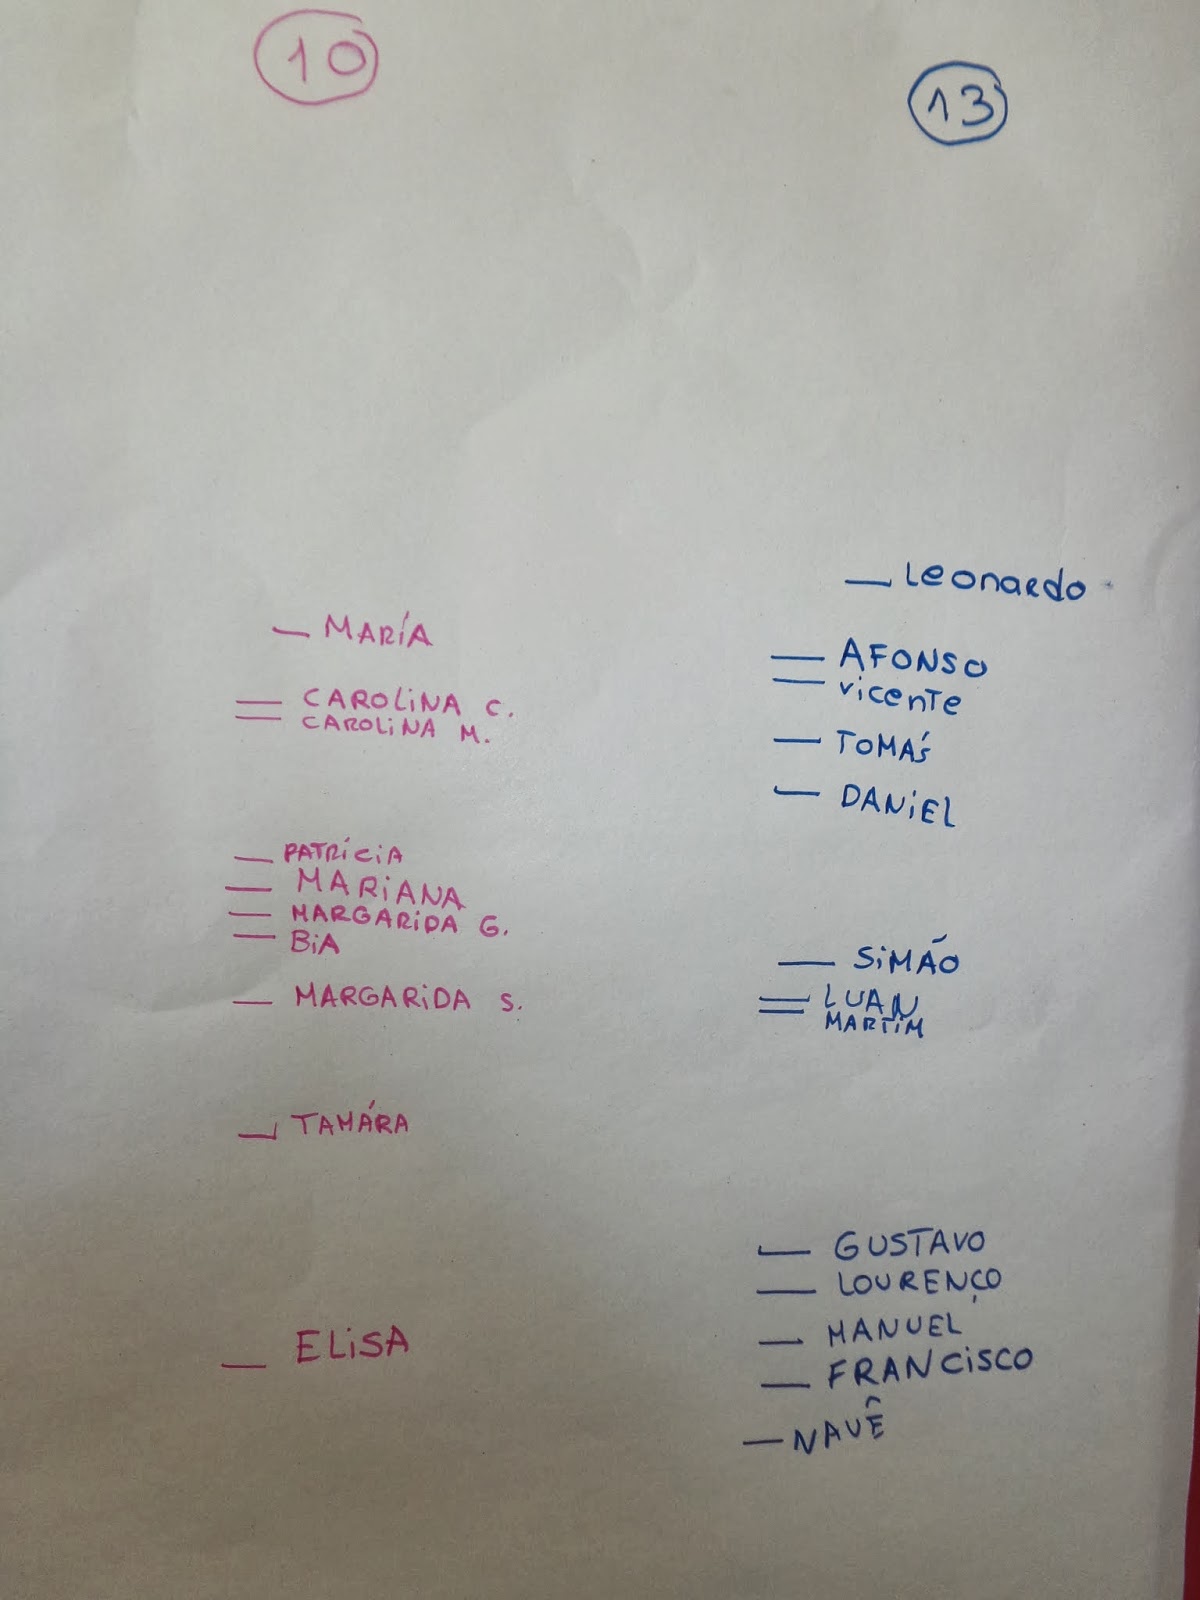 10
MARÍA
CAROLiNA C.
CAROLiNA M.
PATRÍCiA
MARiANA
MARGARiDA G.
BiA
MARGARiDA S.
TAMÁRA
ELiSA
13
Leonardo
AFONSO
vicenTe
TOMÁS
DANiEL
SiMÃO
LUAN
MARTiM
GUSTAVO
LOURENÇO
MANUEL
FRANCiSCO
NAUÊ